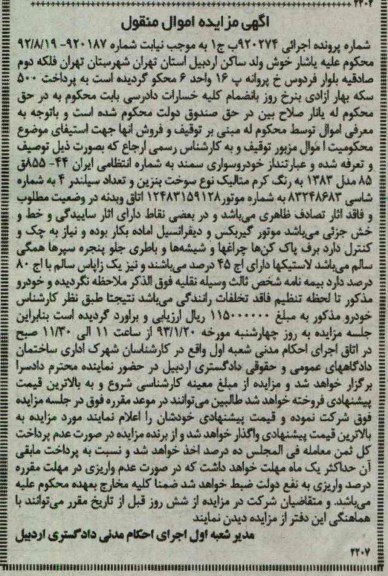 ۴۴۰۴
آگهی مزایده اموال منقول
شماره پرونده اجرائی ۹۲۰۲۷۴ب ج۱ به موجب نیابت شماره ۹۲۰۱۸۷- ۹۲/۸/۱۹
محکوم علیه یاشار خوش ولد ساکن اردبیل استان تهران شهرستان تهران فلکه دوم
صادقیه بلوار فردوس خ پروانه پ ۱۶ واحد ۶ محکو گردیده است به پرداخت ۵۰۰
سکه بهار آزادی بنرخ روز بانضمام کلیه خسارات دادرسی بابت محکوم به در حق
محکوم له یانار صلاح بین در حق صندوق دولت محکوم شده است و باتوجه به
معرفی اموال توسط محکوم له مبنی بر توقیف و فروش آنها جهت استیفای موضوع
محکومیت اموال مزبور توقیف و به کارشناس رسمی ارجاع که بصورت ذیل توصیف
و تعرفه شده و عبارتنداز خودروسواری سمند به شماره انتظامی ایران ۴۴- ۸۵۵ق
۸۵ مدل ۱۳۸۳ به رنگ کرم متالیک نوع سوخت بنزین و تعداد سیلندر ۴ به شماره
شاسی ۸۳۲۴۸۶۸۳ شماره موتور۱۲۴۸۳۱۵۹۱۲۸ اتاق وبدنه در وضعیت مطلوب
و فاقد آثار تصادف ظاهری می‌باشد و در بعضی نقاط دارای آثار ساییدگی و خط و
خش جزئی می‌باشد موتور گیربکس و دیفرانسیل آماده بکار بوده و نیاز به چک و
کنترل دارد برف پاک کن‌ها چراغها و شیشه‌ها و باطری جلو پنجره سپرها همگی
سالم می‌باشد لاستیکها دارای آج ۴۵ درصد می‌باشند و نیز یک زاپاس سالم با آج ۸۰
درصد دارد بیمه نامه شخص ثالث وسیله نقلیه فوق الذکر ملاحظه نگردیده و خودرو
مذکور تا لحظه تنظیم فاقد تخلفات رانندگی می‌باشد نتیجتا طبق نظر کارشناس
خودرو مذکور به مبلغ ۱۱۵۰۰۰۰۰۰ ریال ارزیابی و برآورد گردیده است بنابراین
جلسه مزایده به روز چهارشنبه مورخه ۹۳/۱/۲۰ از ساعت ۱۱ الی ۱۱/۳۰ صبح
در اتاق اجرای احکام مدنی شعبه اول واقع در کارشناسان شهرک اداری ساختمان
دادگاههای عمومی و حقوقی دادگستری اردبیل در حضور نماینده محترم دادسرا
برگزار خواهد شد و مزایده از مبلغ معینه کارشناسی شروع و به بالاترین قیمت
پیشنهادی فروخته خواهد شد طالبین می‌توانند در موعد مقرره فوق در جلسه مزایده
فوق شرکت نموده و قیمت پیشنهادی خودشان را اعلام نمایند مورد مزایده به
بالاترین قیمت پیشنهادی واگذار خواهد شد و از برنده مزایده در صورت عدم پرداخت
کل ثمن معامله فی المجلس ده درصد اخذ خواهد شد و نسبت به پرداخت مابقی
آن حداکثر یک ماه مهلت خواهد داشت که در صورت عدم واریزی در مهلت مقرره
درصد واریزی به نفع دولت ضبط خواهد شد ضمنا کلیه مخارج بعهده محکوم علیه
می‌باشد. و متقاضیان شرکت در مزایده از شش روز قبل از تاریخ مقرر می‌توانند با
هماهنگی این دفتر از مزایده دیدن نمایند
مدیر شعبه اول اجرای احکام مدنی دادگستری اردبیل
۴۲۰۷